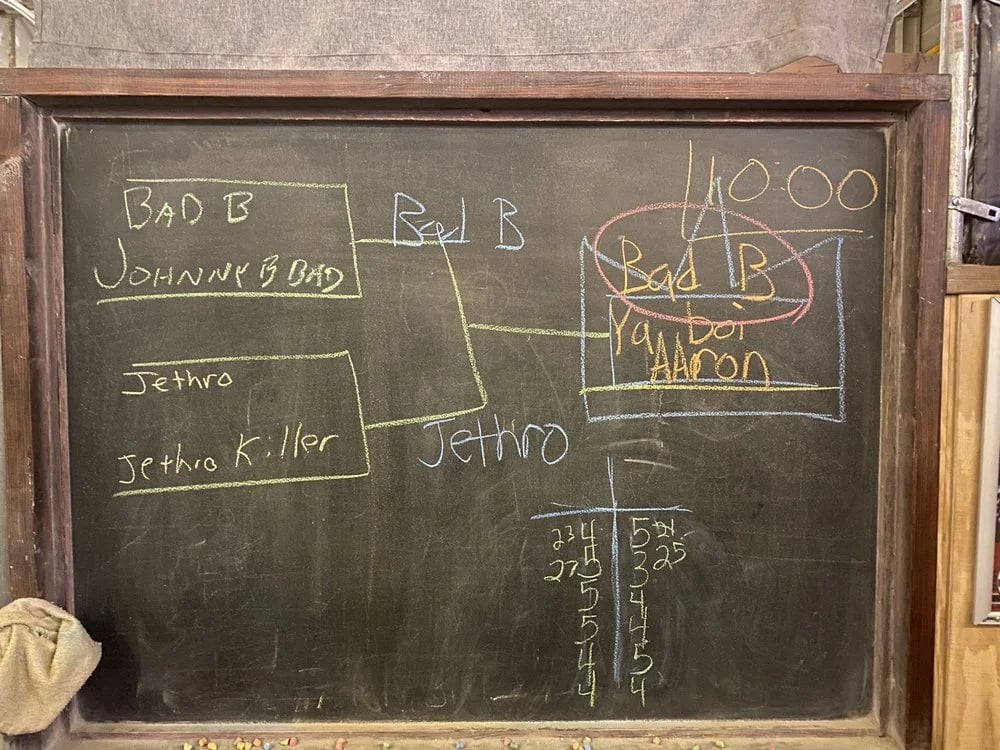 10:00
BAD B
JOHNNY B BAD
Bad B
Bad B
Ya boi
AAron
Jethro
Jethro Killer
Jethro
23 4 5 21
27 5 3 25
5 4
5 4
4 5
4 4